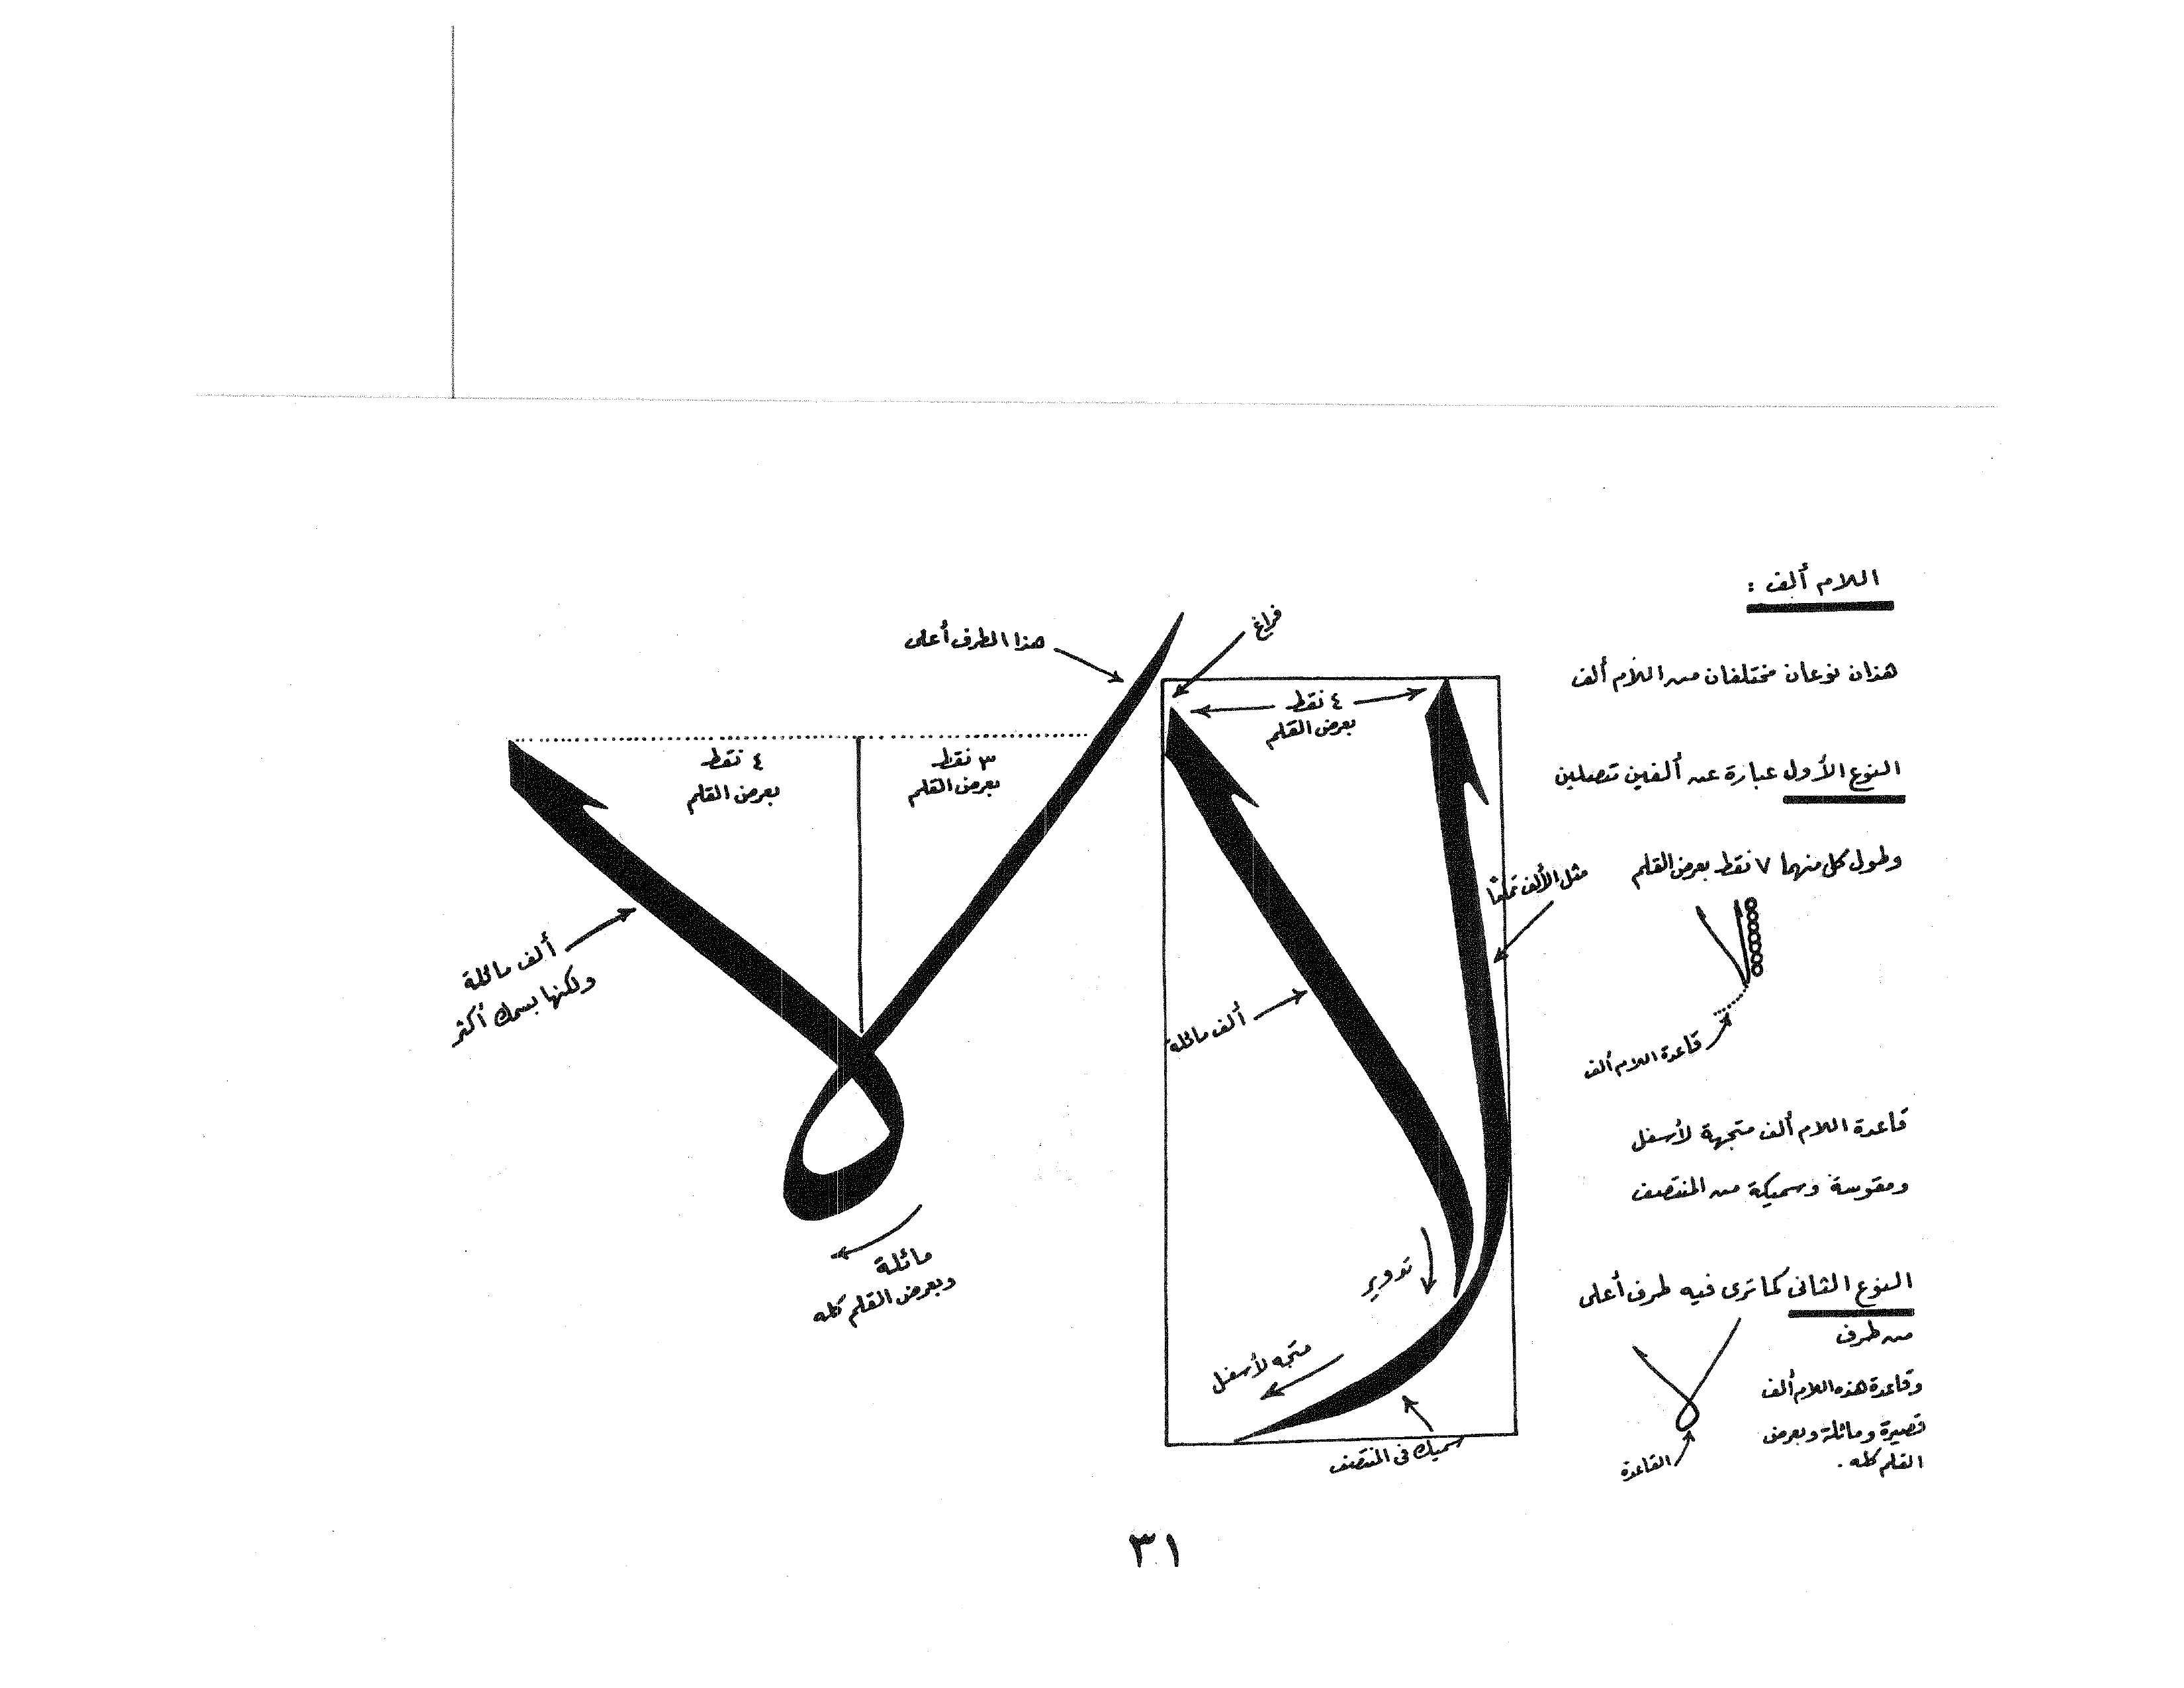 اللام ألف :
هذان نوعان مختلفان من اللام ألف
النوع الأول عبارة عن ألفين متصلين
وطول كل منهما ٧ نقط بعرض القلم
قاعدة اللام ألف
قاعدة اللام ألف متجهة لأسفل
ومقوسة وسميكة من المنتصف
النوع الثانى كما ترى فيه طرف أعلى
من طرف
وقاعدة هذه اللام ألف
قصيرة ومائلة وبعرض
القلم كله .
القاعدة
فراغ
٤ نقط
بعرض القلم
مثل الألف تمامًا
ألف مائلة
تدوير
متجه لأسفل
سميك فى المنتصف
هذا الطرف أعلى
٣ نقط
بعرض القلم
٤ نقط
بعرض القلم
ألف مائلة
ولكنها بسمك أكثر
مائلة
وبعرض القلم كله
٣١